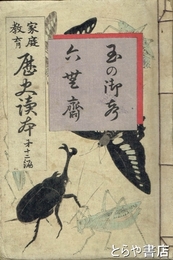 家庭
教育
歴史読本 第十二編
玉の御声
六無齋
とらや書店